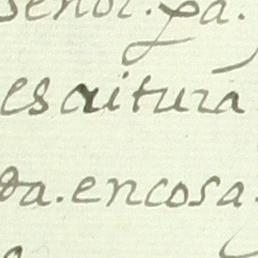 señor. pa.
escritura
da. encosa.